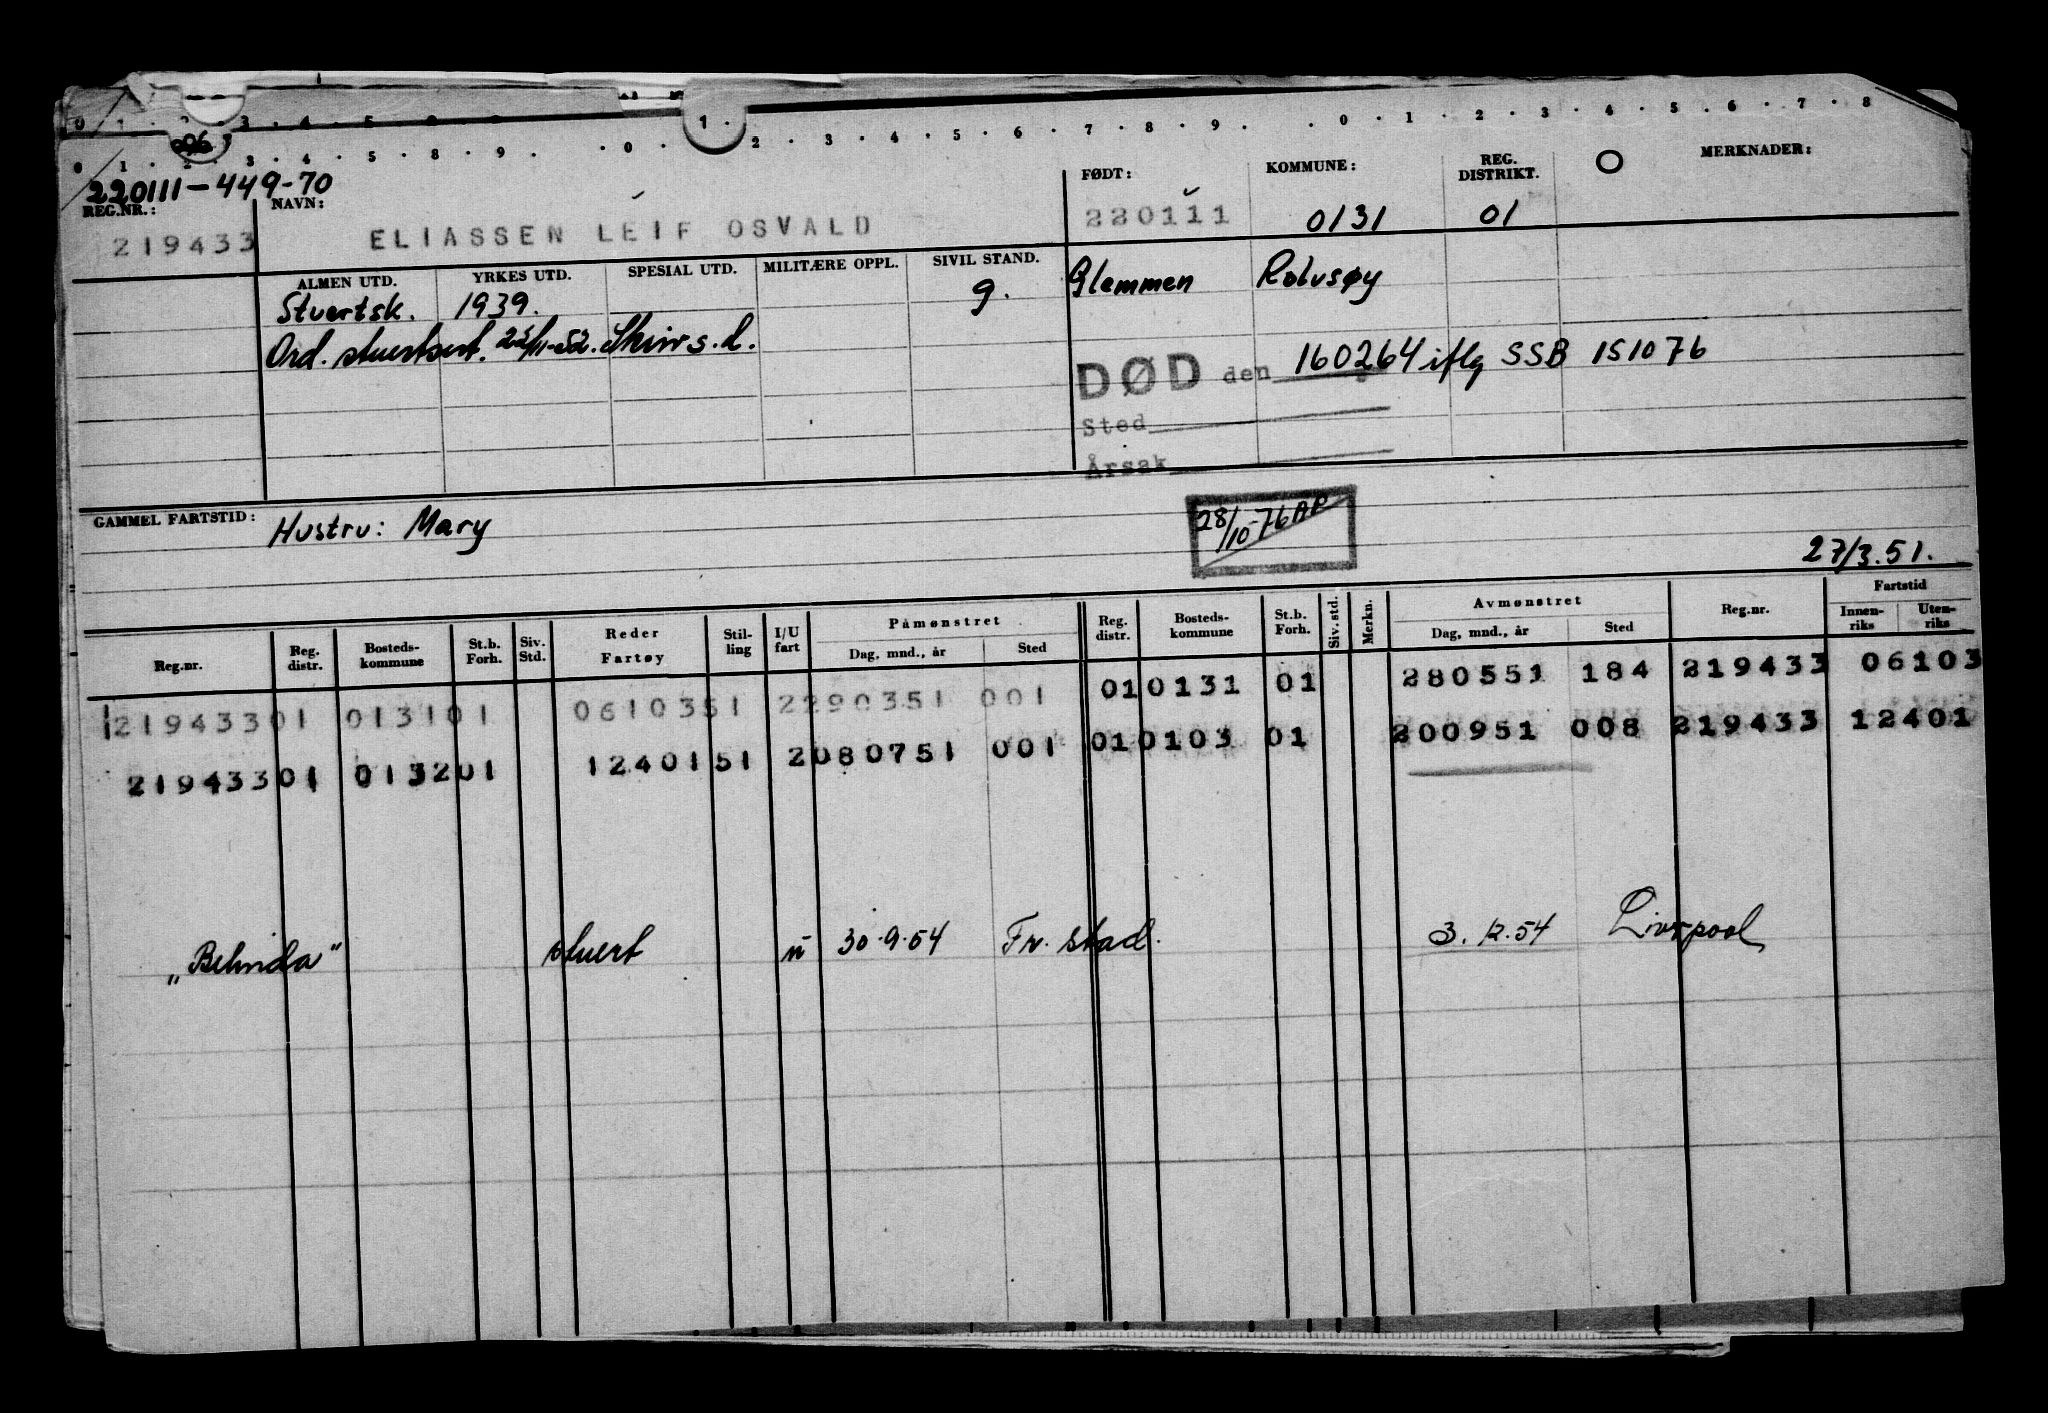 0 1 2 3 4 5 8 9 1 2 3 4 5 6 7 8 9 0 1 2 3 4 5 6 7 8
0 1 2 3 4 5 8 9 0
220111-449-70
REG.NR.: NAVN: FØDT: KOMMUNE: REG. DISTRIKT. O MERKNADER:
219433 ELIASSEN LEIF OSVALD 220111 0131 01
ALMEN UTD. YRKES UTD. SPESIAL UTD. MILITÆRE OPPL. SIVIL STAND.
Stuertsk. 1939. g. Glemmen Rolvsøy
Ord. stuertsert. Skiens.d.
DØD den 160264 iflg SSB 151076
Sted
Årsak
GAMMEL FARTSTID: Hustru: Mary 28/10-76 AP
27/3.51.
Reg.nr. Reg. distr. Bosteds-kommune St.b. Forh. Siv. Std. Reder Fartøy Stil-ling I/U fart Påmønstret Dag, mnd., år Sted Reg. distr. Bosteds-kommune St.b. Forh. Siv. std. Merkn. Avmønstret Dag, mnd., år Sted Reg.nr. Fartstid Innen-riks Uten-riks
219433 01 0131 01 06103 51 2 290351 001 01 0131 01 280551 184 219433 06103
219433 01 0132 01 12401 51 2 080751 001 01 0103 01 200951 008 219433 12401
„Belinda" stuert u 30.9.54 Fr. stad. 3.12.54 Liverpool